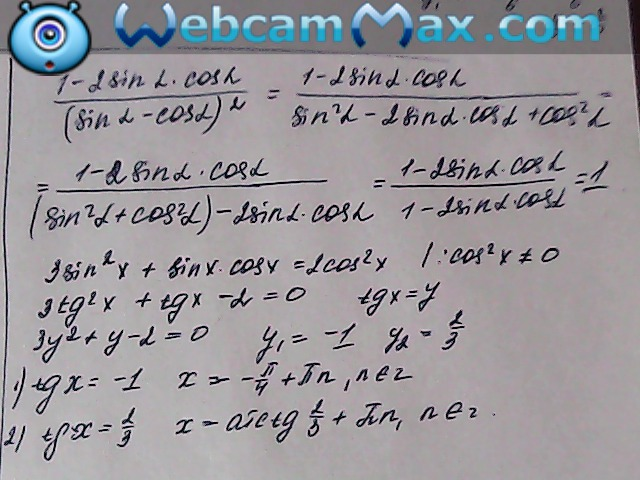 WebcamMax.com
1-2sinα·cosα / (sinα-cosα)² = 1-2sinα·cosα / sin²α-2sinα·cosα+cos²α =
= 1-2sinα·cosα / (sin²α+cos²α)-2sinα·cosα = 1-2sinα·cosα / 1-2sinα·cosα = 1
3sin²x + sinx·cosx = 2cos²x |:cos²x ≠ 0
3tg²x + tgx -2 = 0 tgx = y
3y²+y-2=0 y₁ = -1 y₂ = 2/3
1) tgx = -1 x = -π/4 + πn, n∈z
2) tgx = 2/3 x = arctg 2/3 + πn, n∈z.